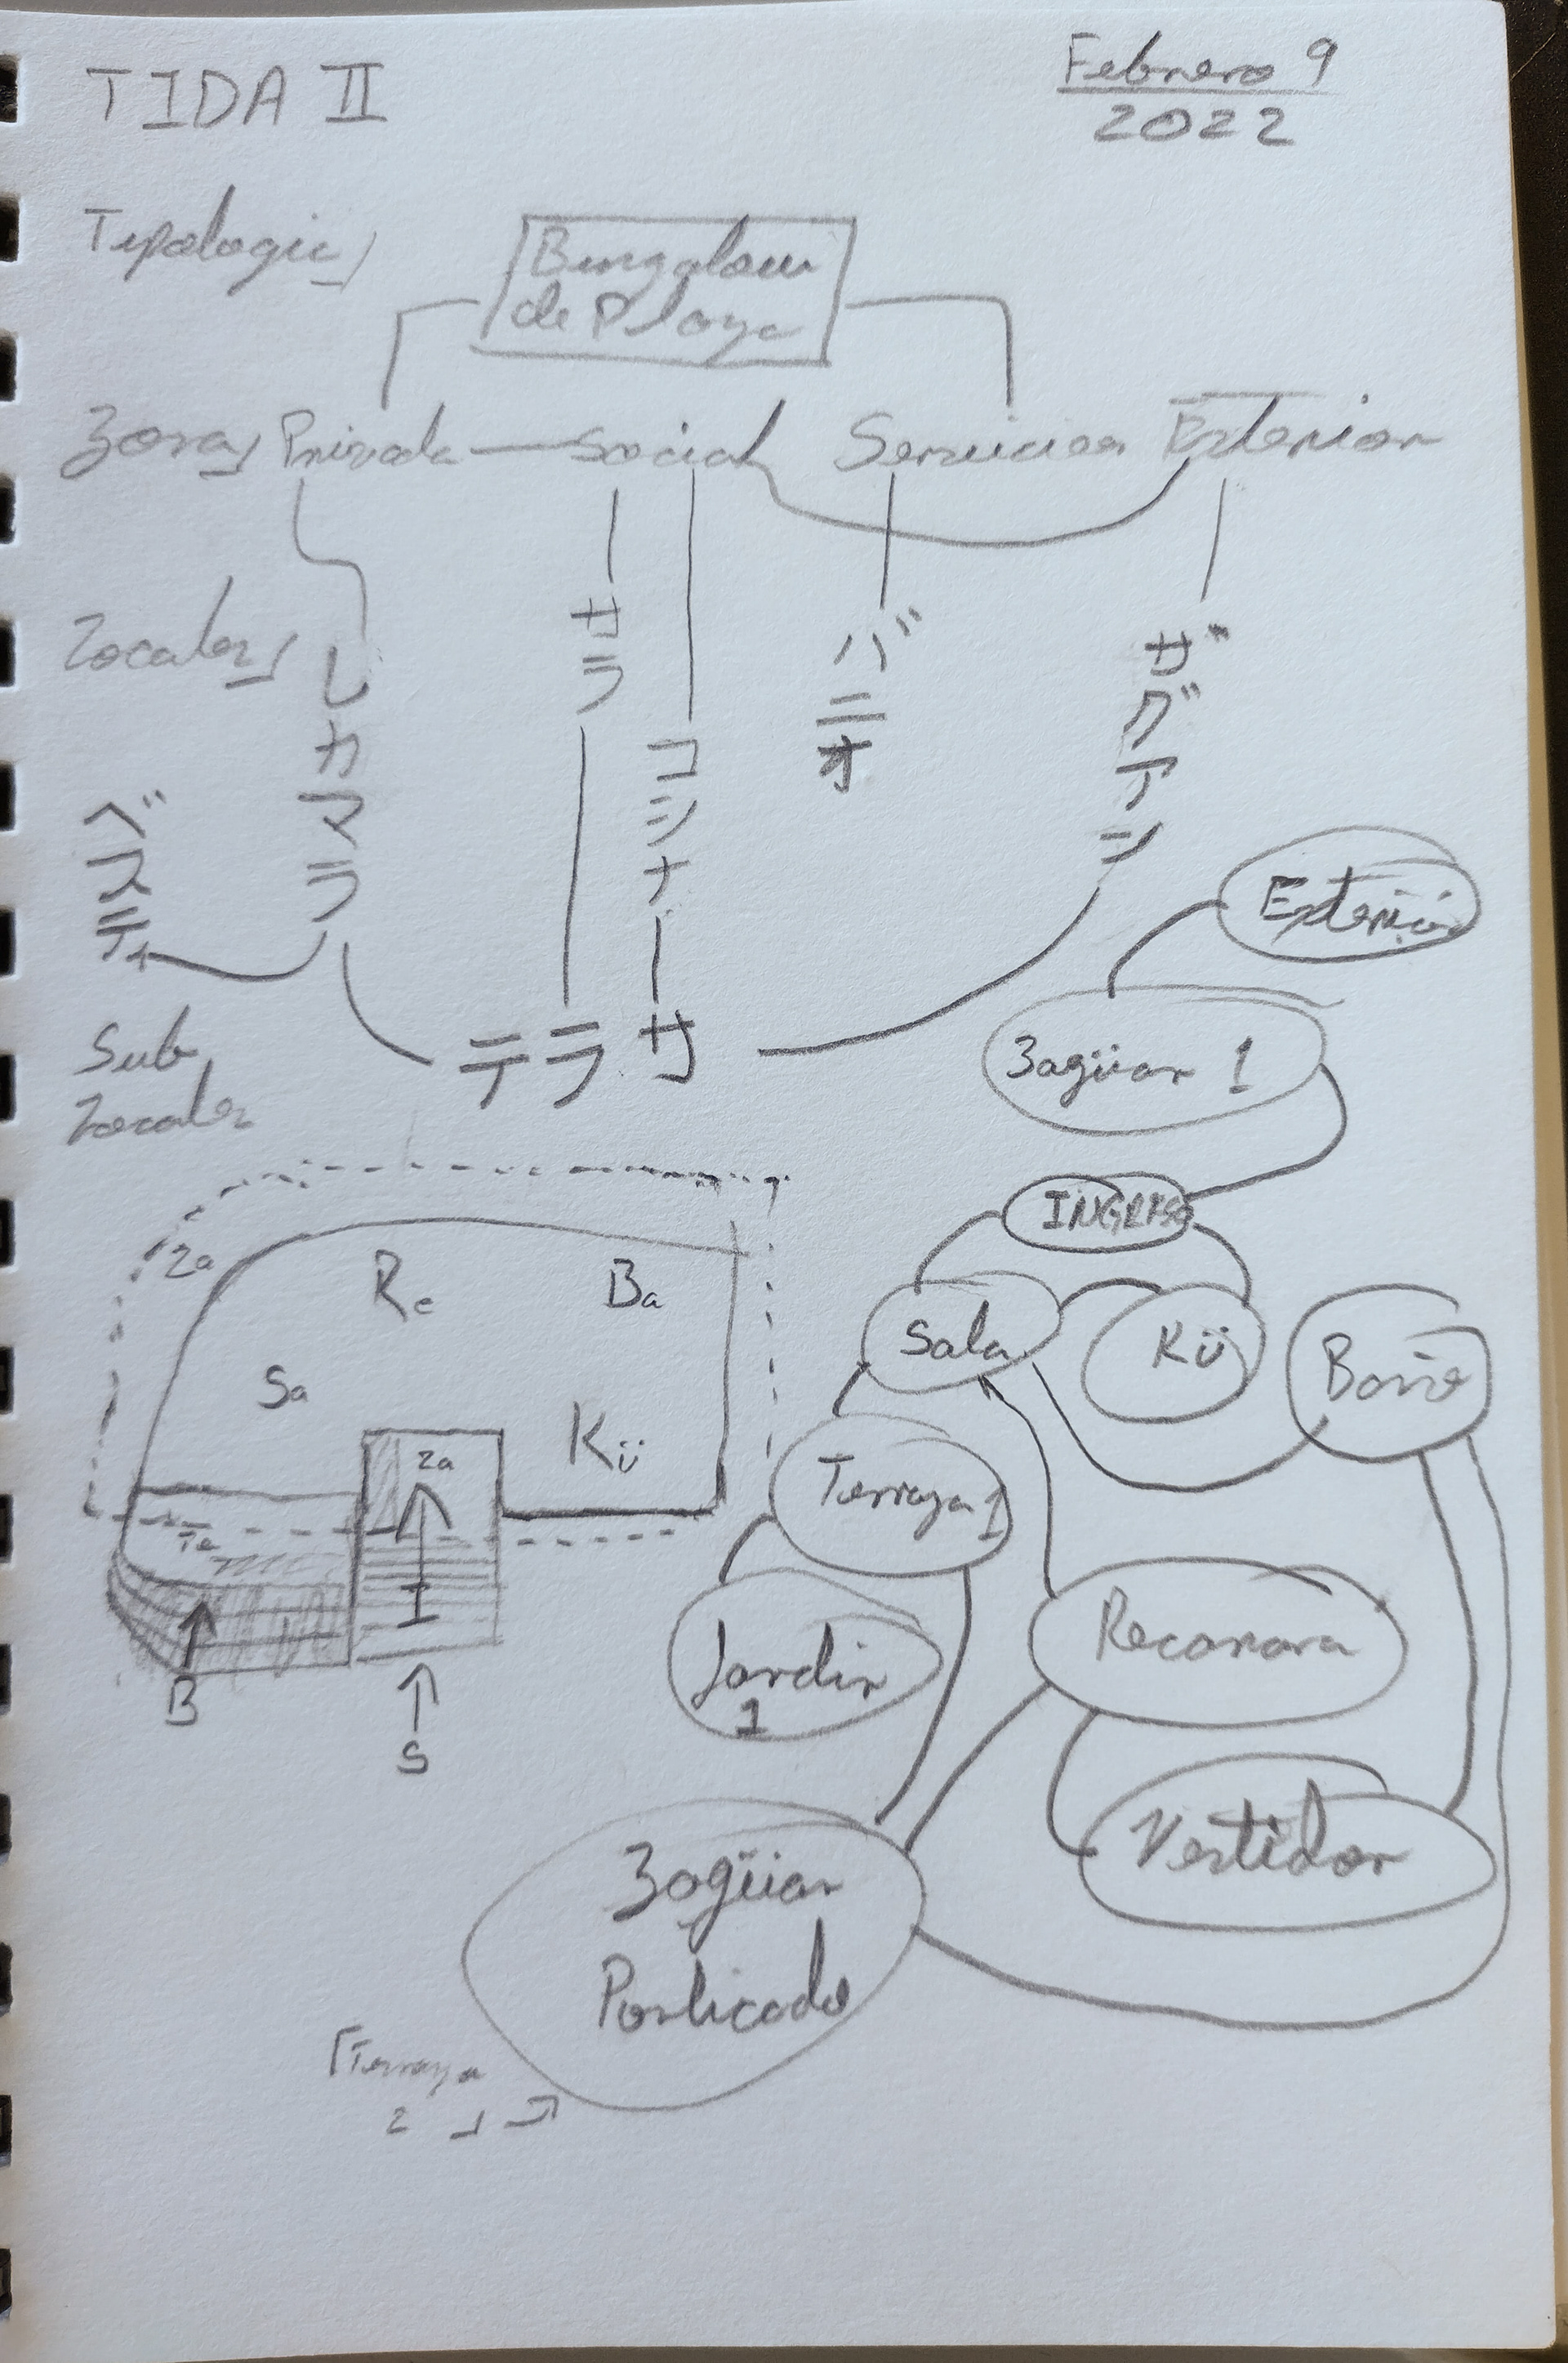 TIDA II
Febrero 9
2022
Tipologia
Bungalow
de Playa
Zonas
Privada
Social
Servicios
Exterior
Locales
レカマラ
サラ
コシナ
バニオ
ザグアン
ベスティ
テラサ
Sub
Locales
Exterior
Zagüan 1
INGRESO
Sala
Kü
Baño
Terraza 1
Jardin
1
Recamara
Vestidor
Zagüan
Porticado
「Terraza
2 」
Za
Re
Ba
Sa
Kü
Za
Te
I
B
S